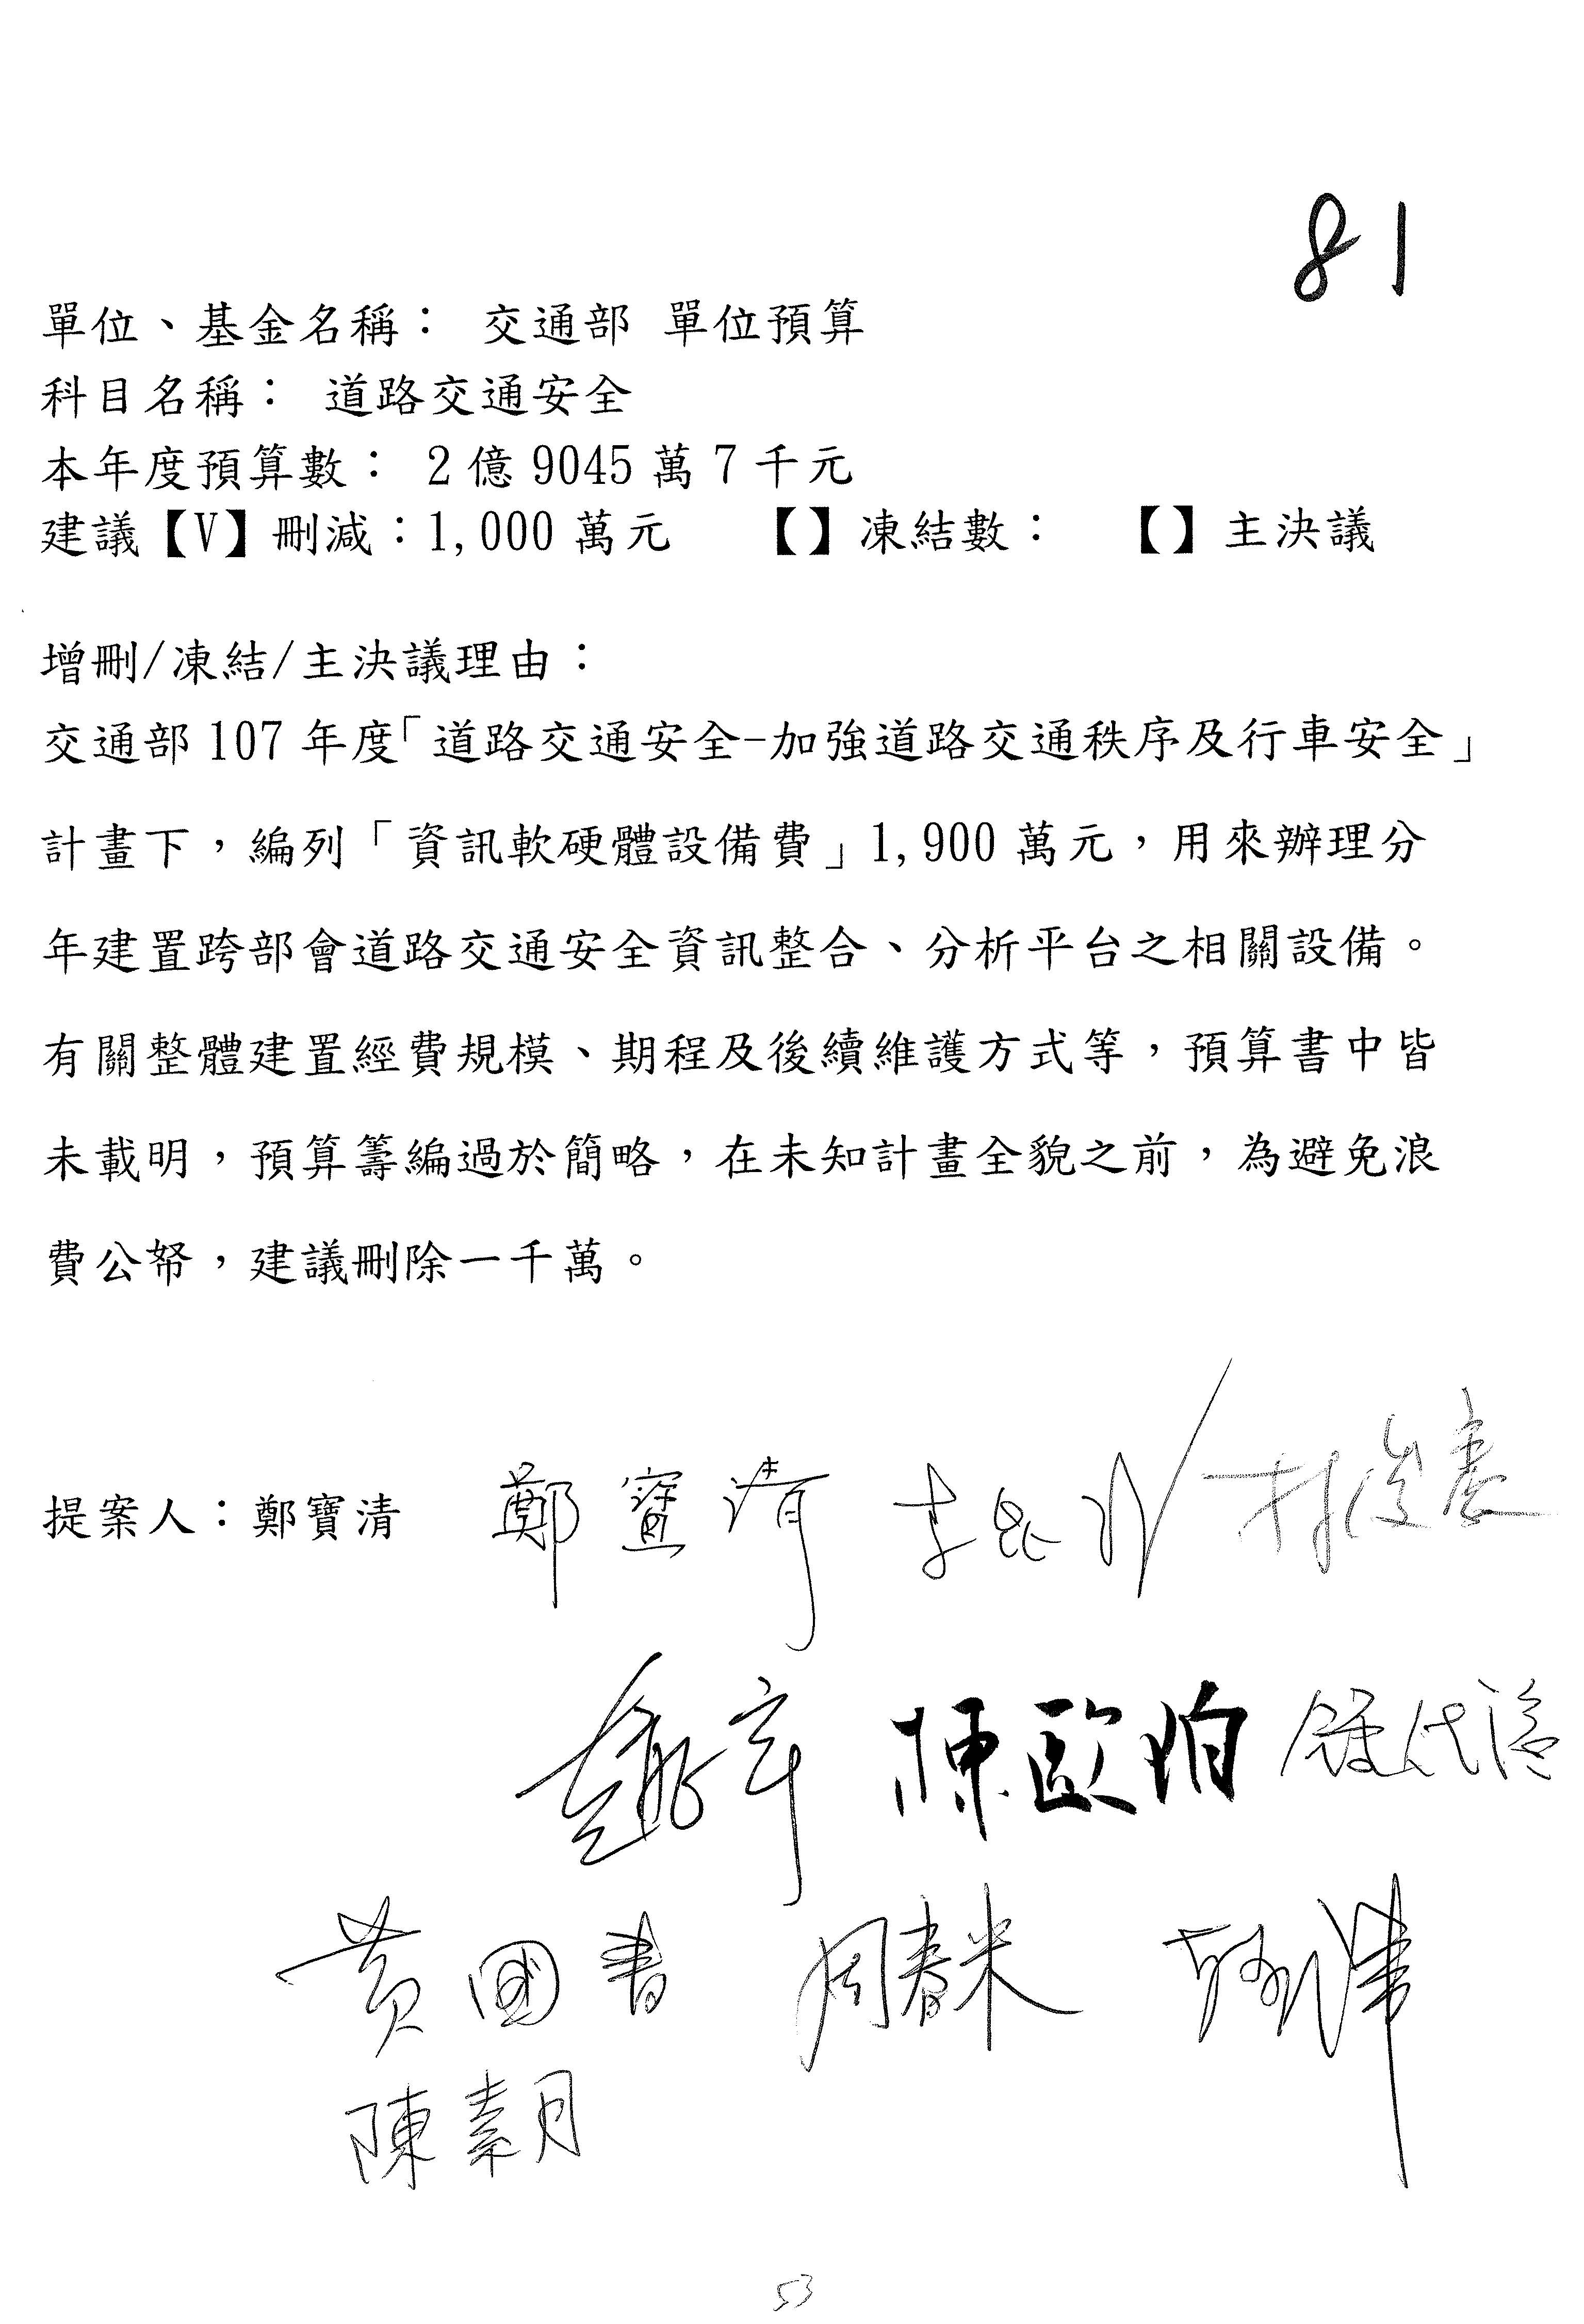 81
單位、基金名稱： 交通部 單位預算
科目名稱： 道路交通安全
本年度預算數： 2億9045萬7千元
建議【V】刪減：1,000萬元 【】凍結數： 【】主決議
增刪/凍結/主決議理由：
交通部107年度「道路交通安全-加強道路交通秩序及行車安全」
計畫下，編列「資訊軟硬體設備費」1,900萬元，用來辦理分
年建置跨部會道路交通安全資訊整合、分析平台之相關設備。
有關整體建置經費規模、期程及後續維護方式等，預算書中皆
未載明，預算籌編過於簡略，在未知計畫全貌之前，為避免浪
費公帑，建議刪除一千萬。
提案人：鄭寶清 鄭寶清 李昆澤 林俊憲
陳歐珀 鍾佳濱
黃國書 周春米
陳素月
53